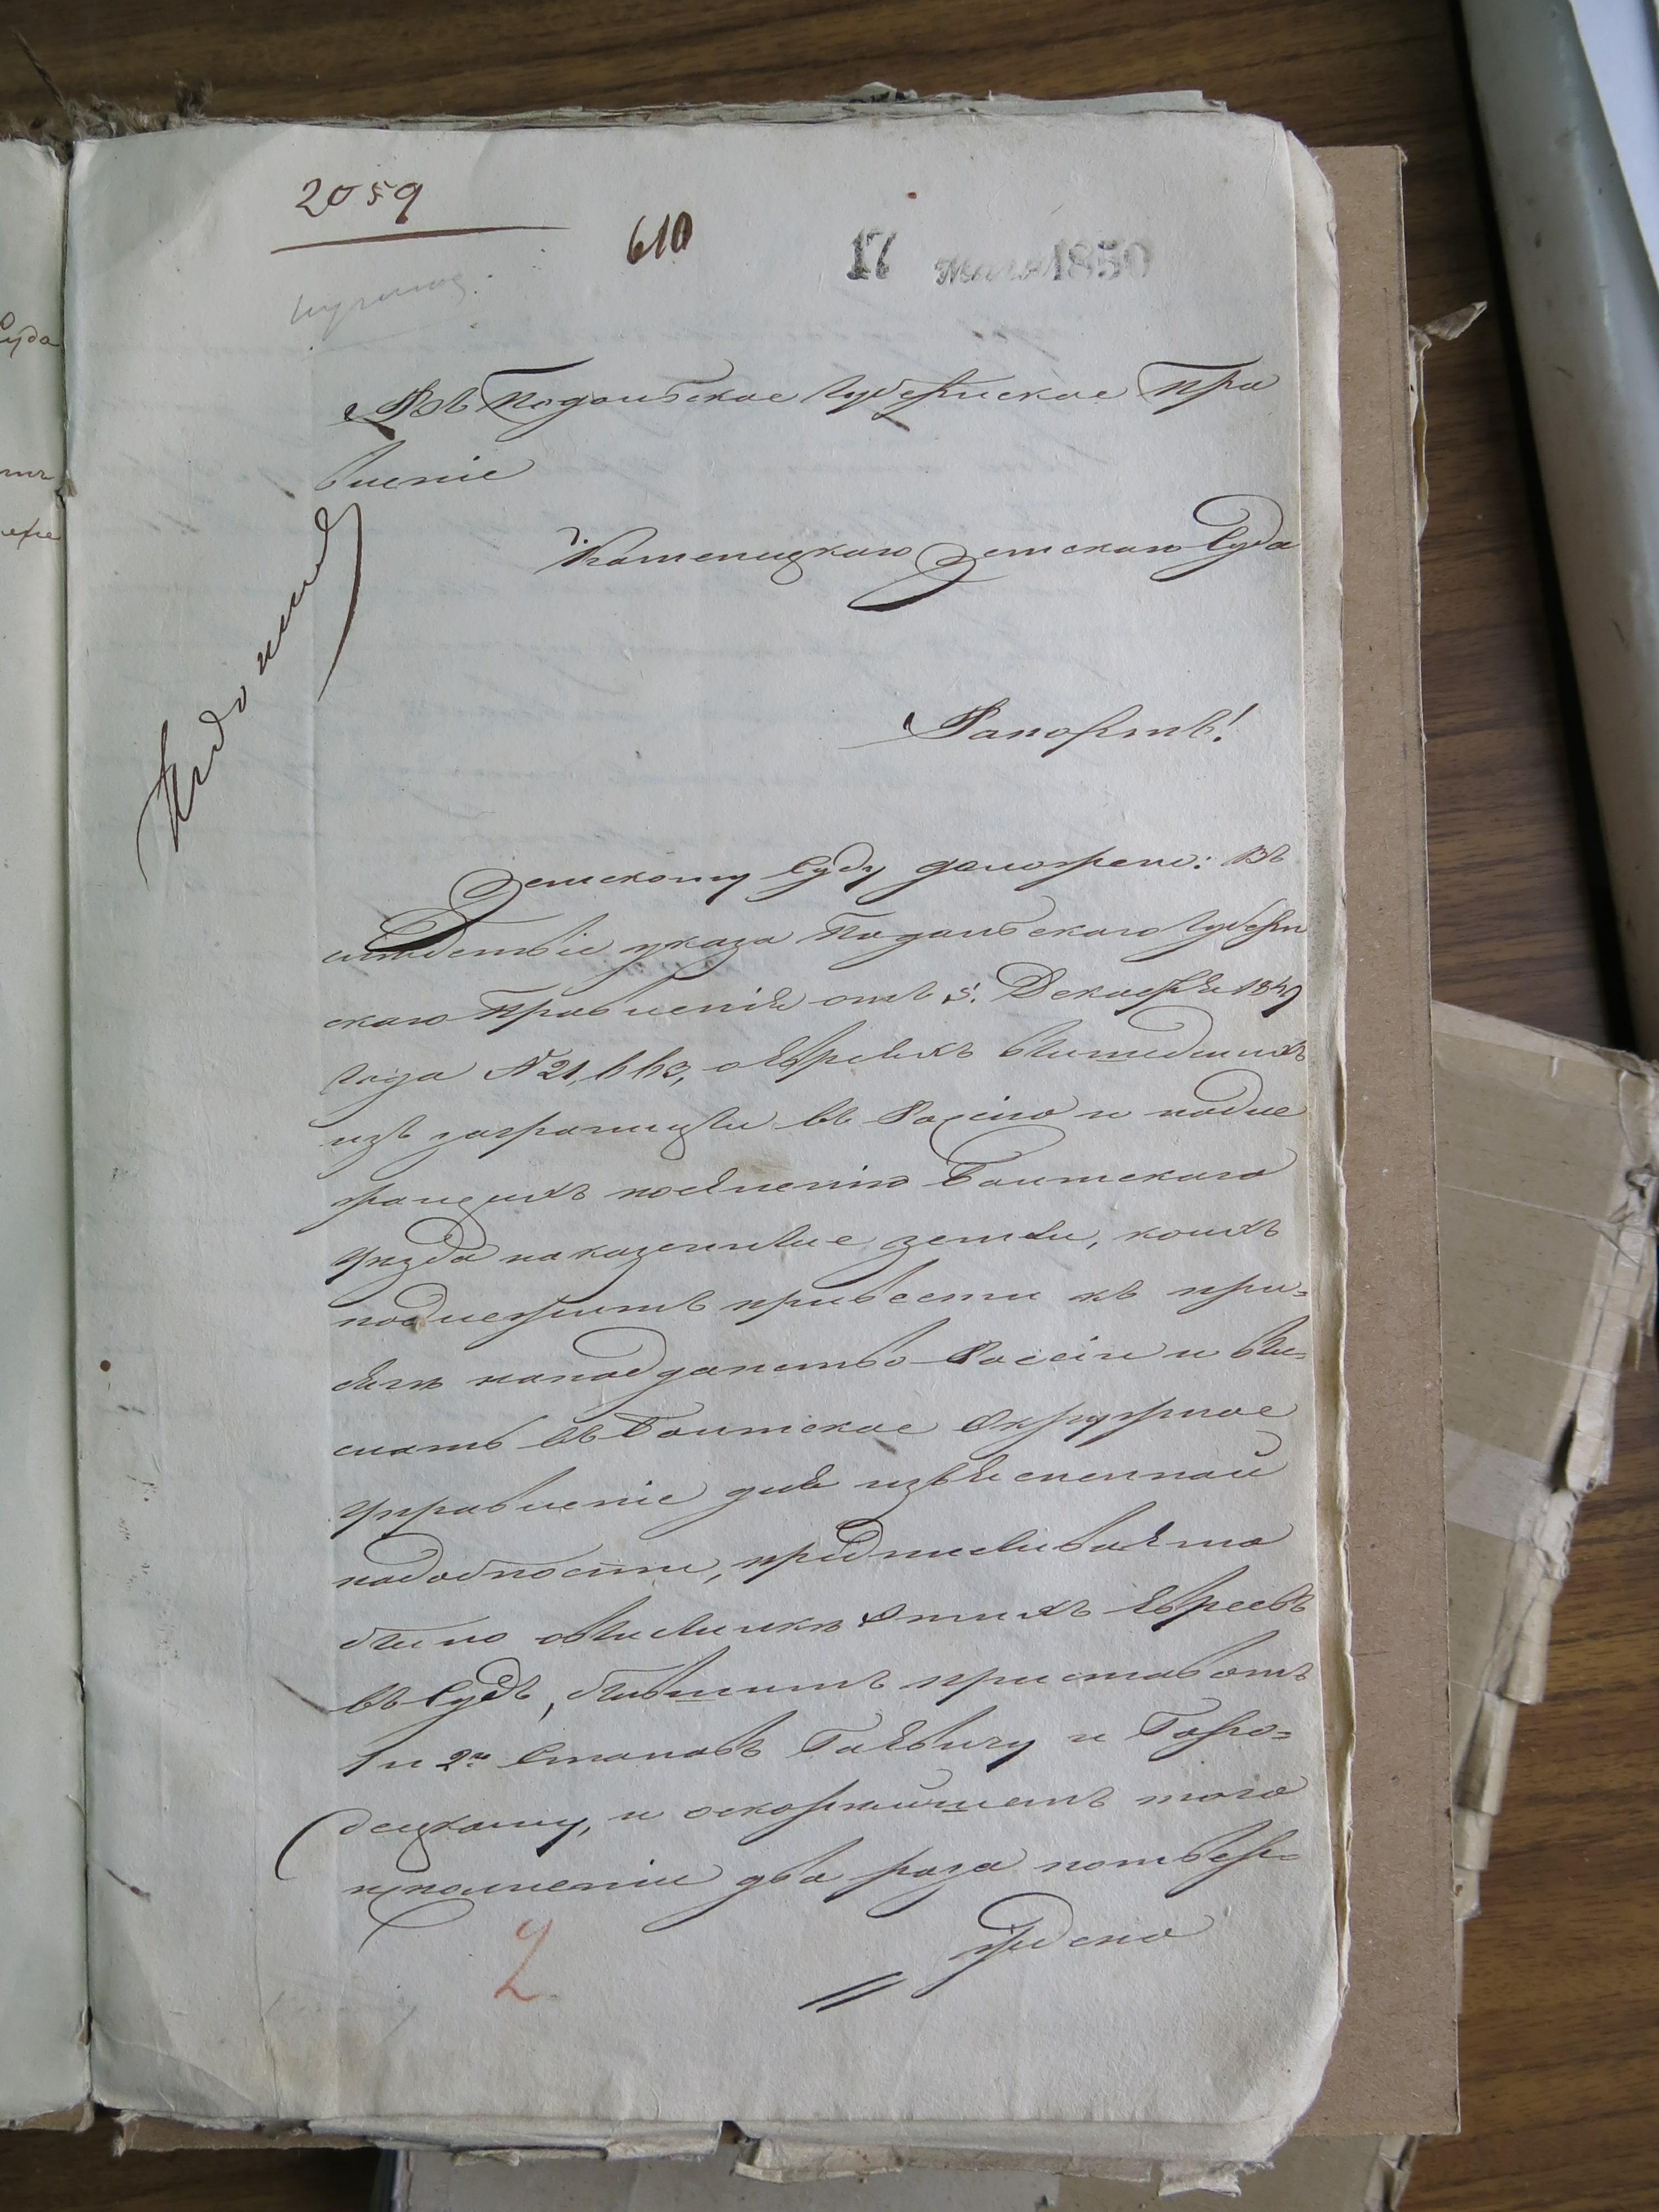 2059
610
17 Мая 1850
Въ Подольское Губернское Пра
вленіе
Каменецкаго Земскаго Суда
Рапортъ!
Къ дѣлу
Земскому Суду доложено: въ
слѣдствіе указа Подольскаго Губерн
скаго Правленія отъ 5. Декабря 1849
года № 21,663, о Евреяхъ вышедшихъ
изъ заграницы въ Россію и подле
жащихъ поселенію Балтскаго
уѣзда на казенные земли, коихъ
подлежитъ привести къ при=
сягѣ на подданство Россіи и вы=
слать въ Балтское Окружное
Управленіе для изъясненной
надобности, предписываемо
было о высылкѣ этихъ Евреевъ
въ Судъ, бывшимъ приставамъ
1 и 2го Становъ Гаевичу и Горо=
децкому, и о скорѣйшемъ того
исполненіи два раза подтвер=
ждено
2